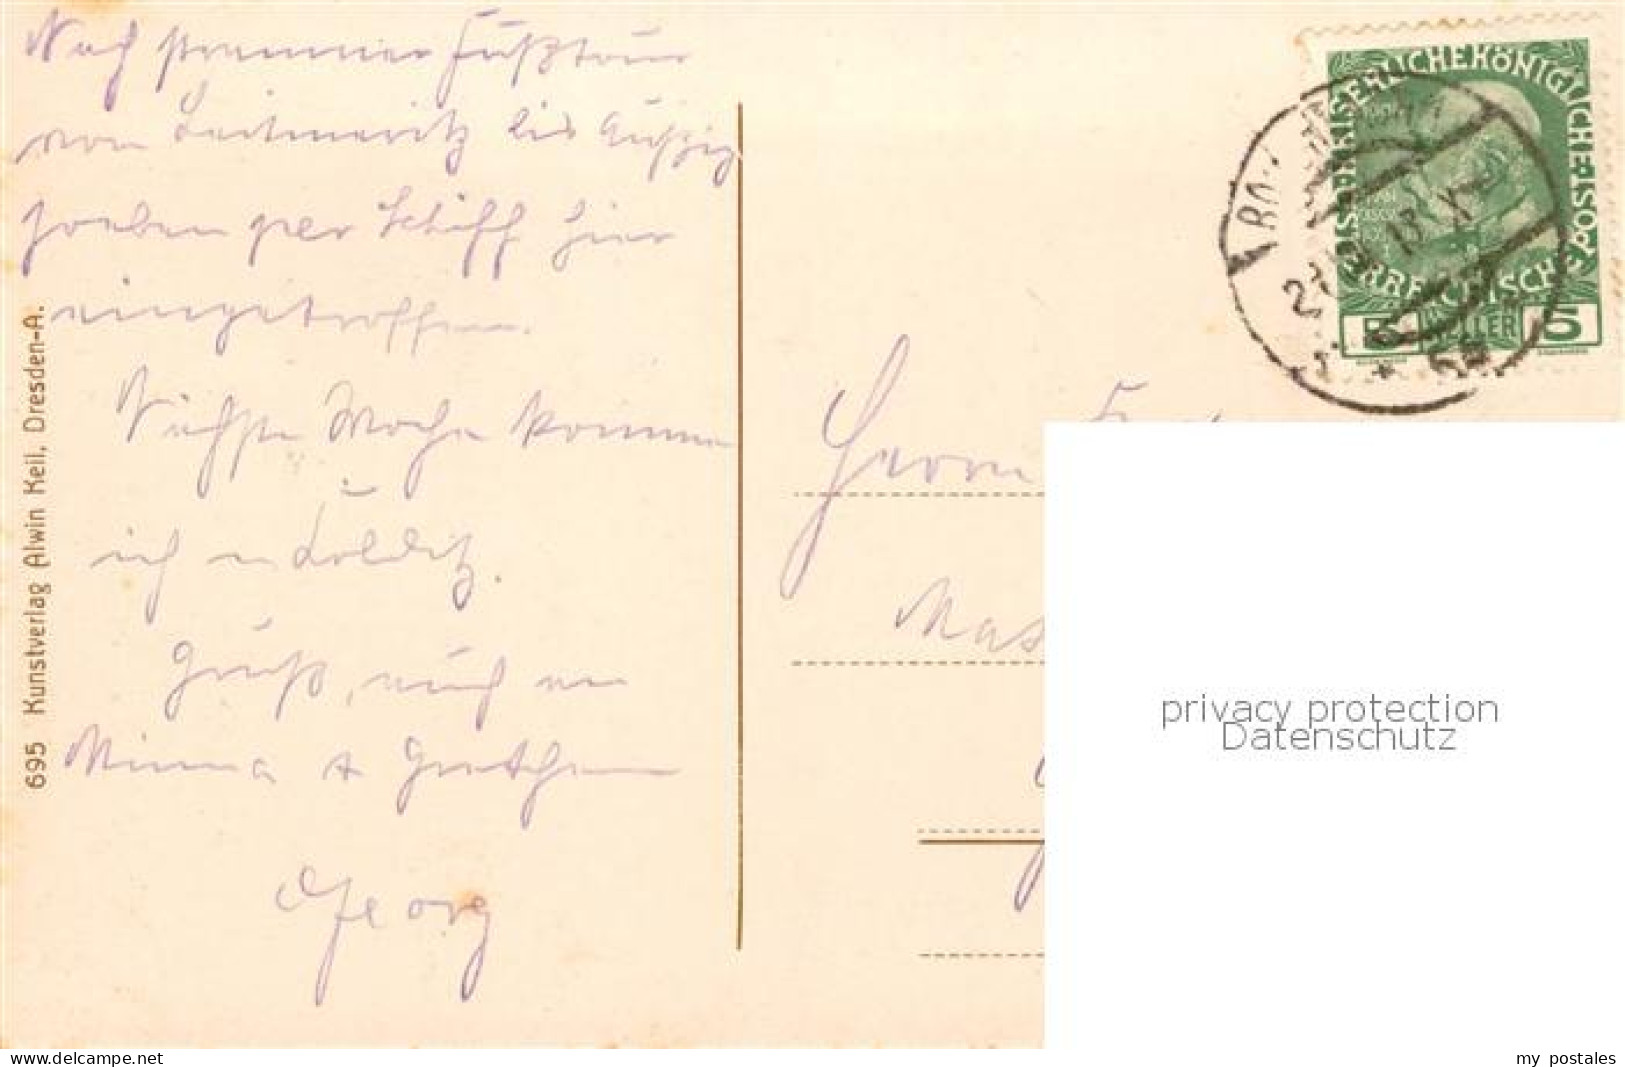 Nach strammer Fußtour
von Leitmeritz bis Aussig
soeben per Schiff hier
eingetroffen.
Nächste Woche komme
ich n. Colditz.
Gruß, auch an
Minna + Gretchen
Georg
695 Kunstverlag Alwin Keil, Dresden-A.
KAISERLICHE KÖNIGLICHE ÖSTERREICHISCHE POST
5 HELLER 5
13 X
Herrn
privacy protection
Datenschutz
www.delcampe.net
my_postales